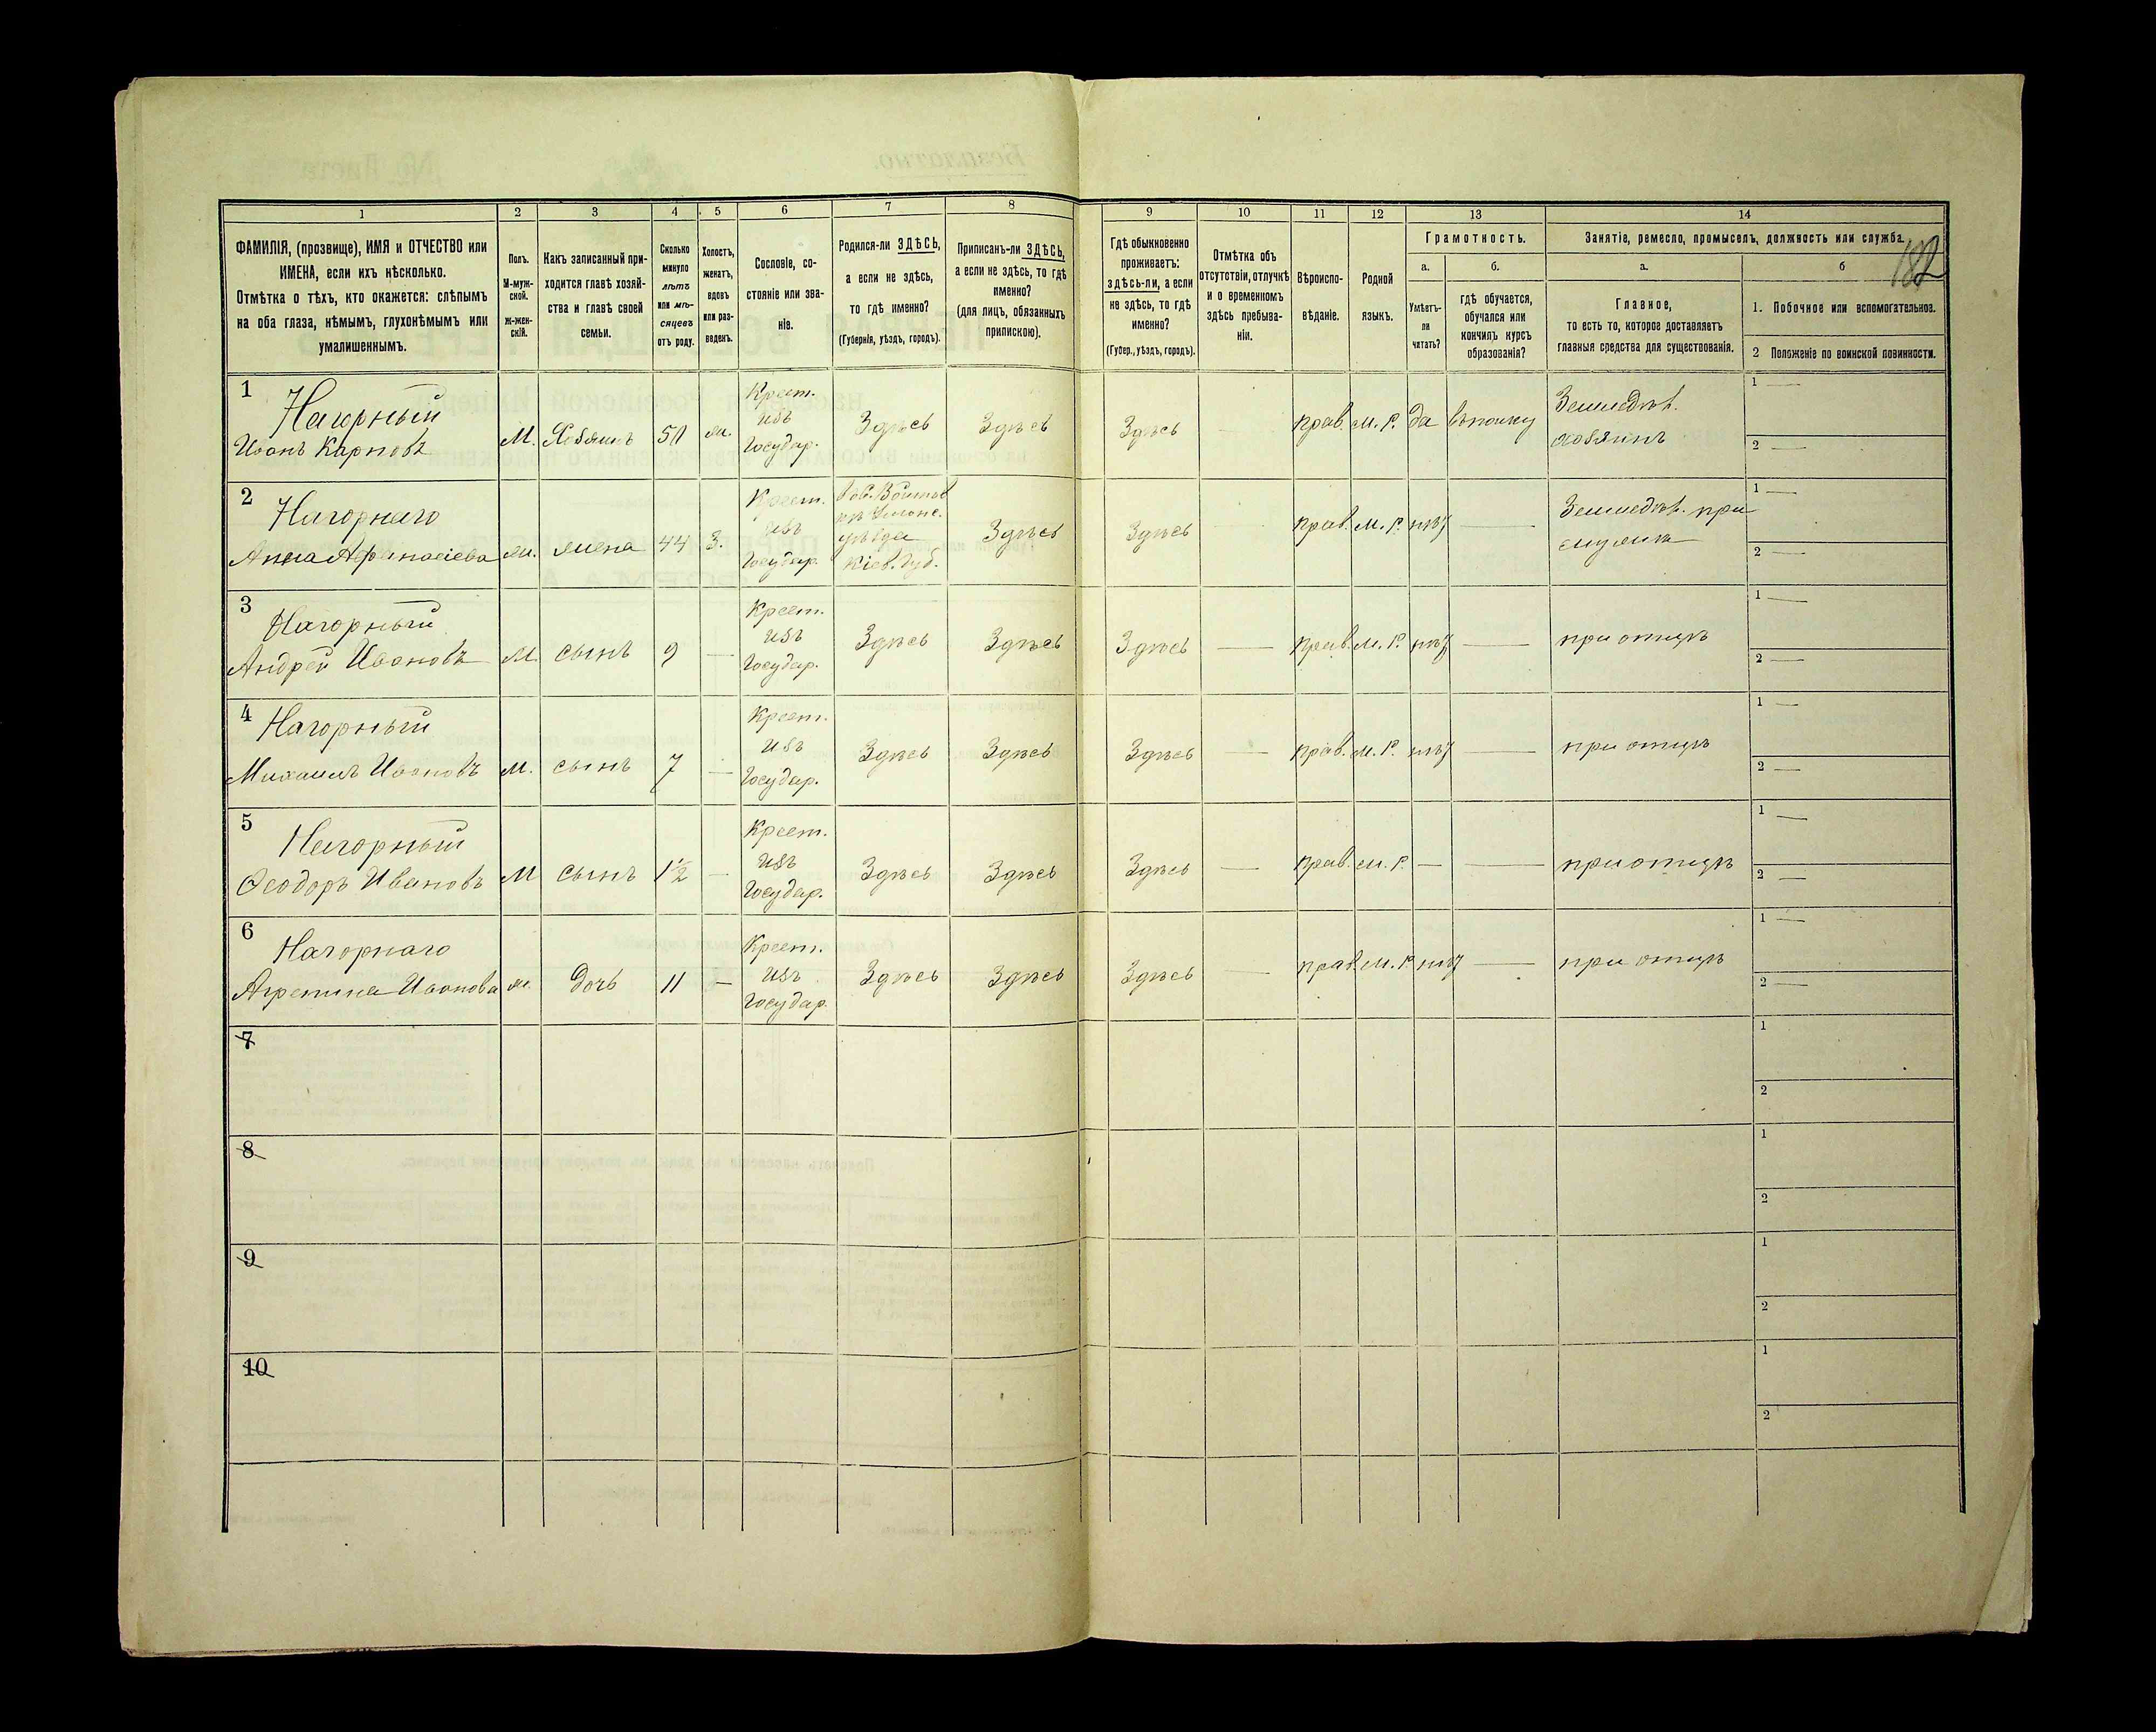 182
1 2 3 4 5 6 7 8 9 10 11 12 13 14
ФАМИЛІЯ, (прозвище), ИМЯ и ОТЧЕСТВО или
ИМЕНА, если ихъ нѣсколько.
Отмѣтка о тѣхъ, кто окажется: слѣпымъ
на оба глаза, нѣмымъ, глухонѣмымъ или
умалишеннымъ.
Полъ.
М-муж-
ской.
Ж-жен-
скій.
Какъ записанный при-
ходится главѣ хозяй-
ства и главѣ своей
семьи.
Сколько
минуло
лѣтъ
или мѣ-
сяцевъ
отъ роду.
Холостъ,
женатъ,
вдовъ
или раз-
веденъ.
Сословіе, со-
стояніе или зва-
ніе.
Родился-ли ЗДѢСЬ,
а если не здѣсь,
то гдѣ именно?
(Губернія, уѣздъ, городъ).
Приписанъ-ли ЗДѢСЬ,
а если не здѣсь, то гдѣ
именно?
(для лицъ, обязанныхъ
припискою).
Гдѣ обыкновенно
проживаетъ:
здѣсь-ли, а если
не здѣсь, то гдѣ
именно?
(Губер., уѣздъ, городъ).
Отмѣтка объ
отсутствіи, отлучкѣ
и о временномъ
здѣсь пребыва-
ніи.
Вѣроиспо-
вѣданіе.
Родной
языкъ.
Грамотность.
а.
Умѣетъ-
ли
читать?
б.
гдѣ обучается,
обучался или
кончилъ курсъ
образованія?
Занятіе, ремесло, промыселъ, должность или служба.
а.
Главное,
то есть то, которое доставляетъ
главныя средства для существованія.
б
1. Побочное или вспомогательное.
2 Положеніе по воинской повинности.
1
Нагорный
Иванъ Карповъ
М.
Хозяинъ
50
ж.
Крест.
изъ
Государ.
Здѣсь
Здѣсь
Здѣсь
—
прав.
м. р.
да
въ полку
Земледѣл.
хозяинъ
1 —
2 —
2
Нагорнаго
Анна Афанасіева
ж.
жена
44
З.
Крест.
изъ
Государ.
уѣзда
Кіев. Губ.
Здѣсь
Здѣсь
—
прав.
м. р.
нѣт
—
Земледѣл. при
мужѣ
1 —
2 —
3
Нагорный
Андрей Ивановъ
М.
сынъ
9
—
Крест.
изъ
Государ.
Здѣсь
Здѣсь
Здѣсь
—
прав.
м. р.
нѣт
—
при отцѣ
1 —
2 —
4
Нагорный
Михаилъ Ивановъ
м.
сынъ
7
—
Крест.
изъ
Государ.
Здѣсь
Здѣсь
Здѣсь
—
прав.
м. р.
нѣт
—
при отцѣ
1 —
2 —
5
Нагорный
Ѳеодоръ Ивановъ
М
сынъ
1½
—
Крест.
изъ
Государ.
Здѣсь
Здѣсь
Здѣсь
—
прав.
м. р.
—
—
при отцѣ
1 —
2 —
6
Нагорнаго
Агрепина Иванова
ж.
дочь
11
—
Крест.
изъ
Государ.
Здѣсь
Здѣсь
Здѣсь
—
прав.
м. р.
нѣт
—
при отцѣ
1 —
2 —
7
1
2
8
1
2
9
1
2
10
1
2